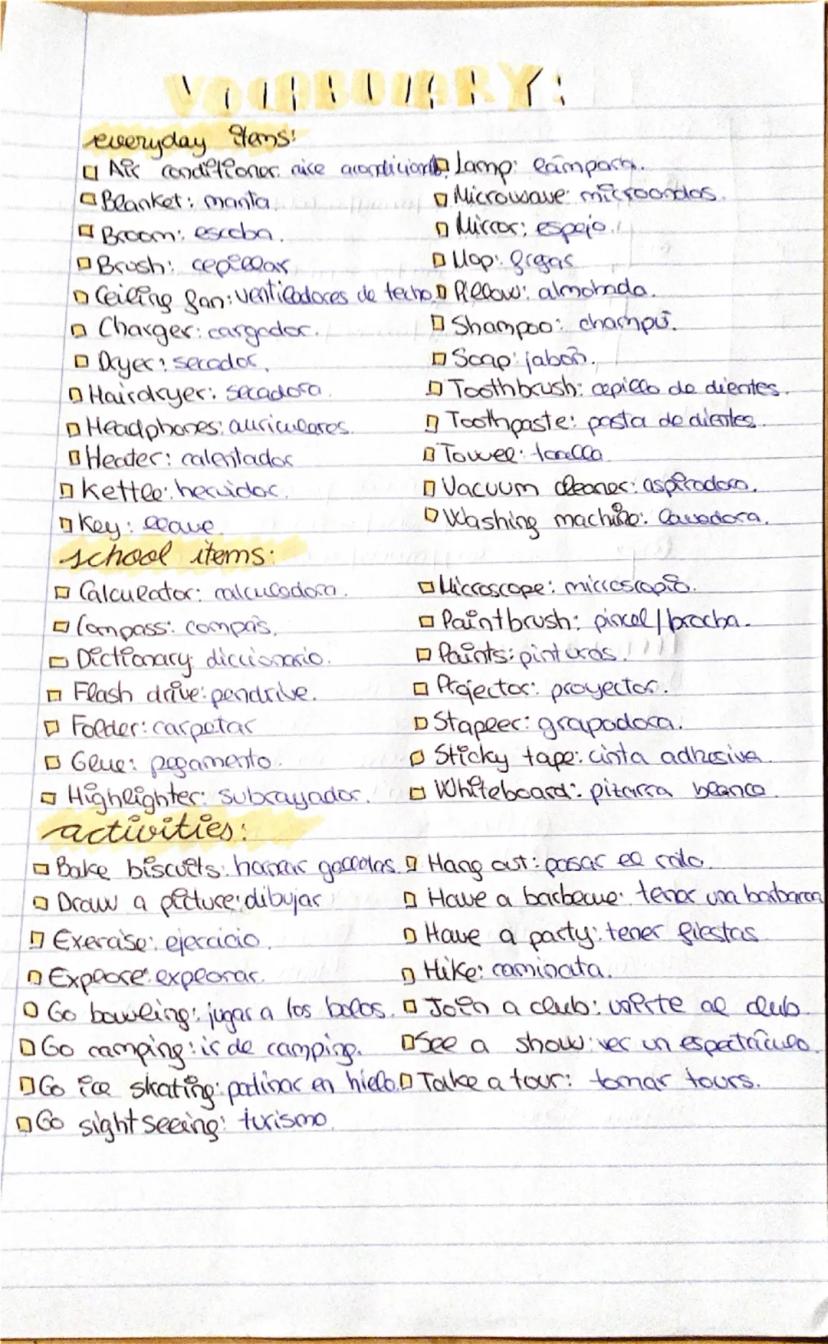 VOCABULARY:
everyday items:
Air conditioner: aire acondicionado. Lamp: lámpara.
Blanket: manta. Microwave: microondas.
Broom: escoba. Mirror: espejo.
Brush: cepillar Mop: fregar
Ceiling fan: ventiladores de techo. Pillow: almohada.
Charger: cargador. Shampoo: champú.
Dryer: secador. Soap: jabón.
Hairdryer: secadora. Toothbrush: cepillo de dientes.
Headphones: auriculares. Toothpaste: pasta de dientes.
Heater: calentador Towel: toalla
Kettle: hervidor. Vacuum cleaner: aspiradora.
Key: llave Washing machine: lavadora.
school items:
Calculator: calculadora. Microscope: microscopio.
Compass: compás. Paintbrush: pincel/brocha.
Dictionary diccionario. Paints: pinturas.
Flash drive: pendrive. Projector: proyector.
Folder: carpetar Stapler: grapadora.
Glue: pegamento. Sticky tape: cinta adhesiva.
Highlighter: subrayador. Whiteboard: pizarra blanca.
activities:
Bake biscuits: hornear galletas. Hang out: pasar el rato.
Draw a picture: dibujar Have a barbecue: tener una barbacoa
Exercise: ejercicio. Have a party: tener fiestas
Explore: explorar. Hike: caminata.
Go bowling: jugar a los bolos. Join a club: unirte al club.
Go camping: ir de camping. See a show: ver un espectáculo.
Go ice skating: patinar en hielo. Take a tour: tomar tours.
Go sightseeing: turismo.